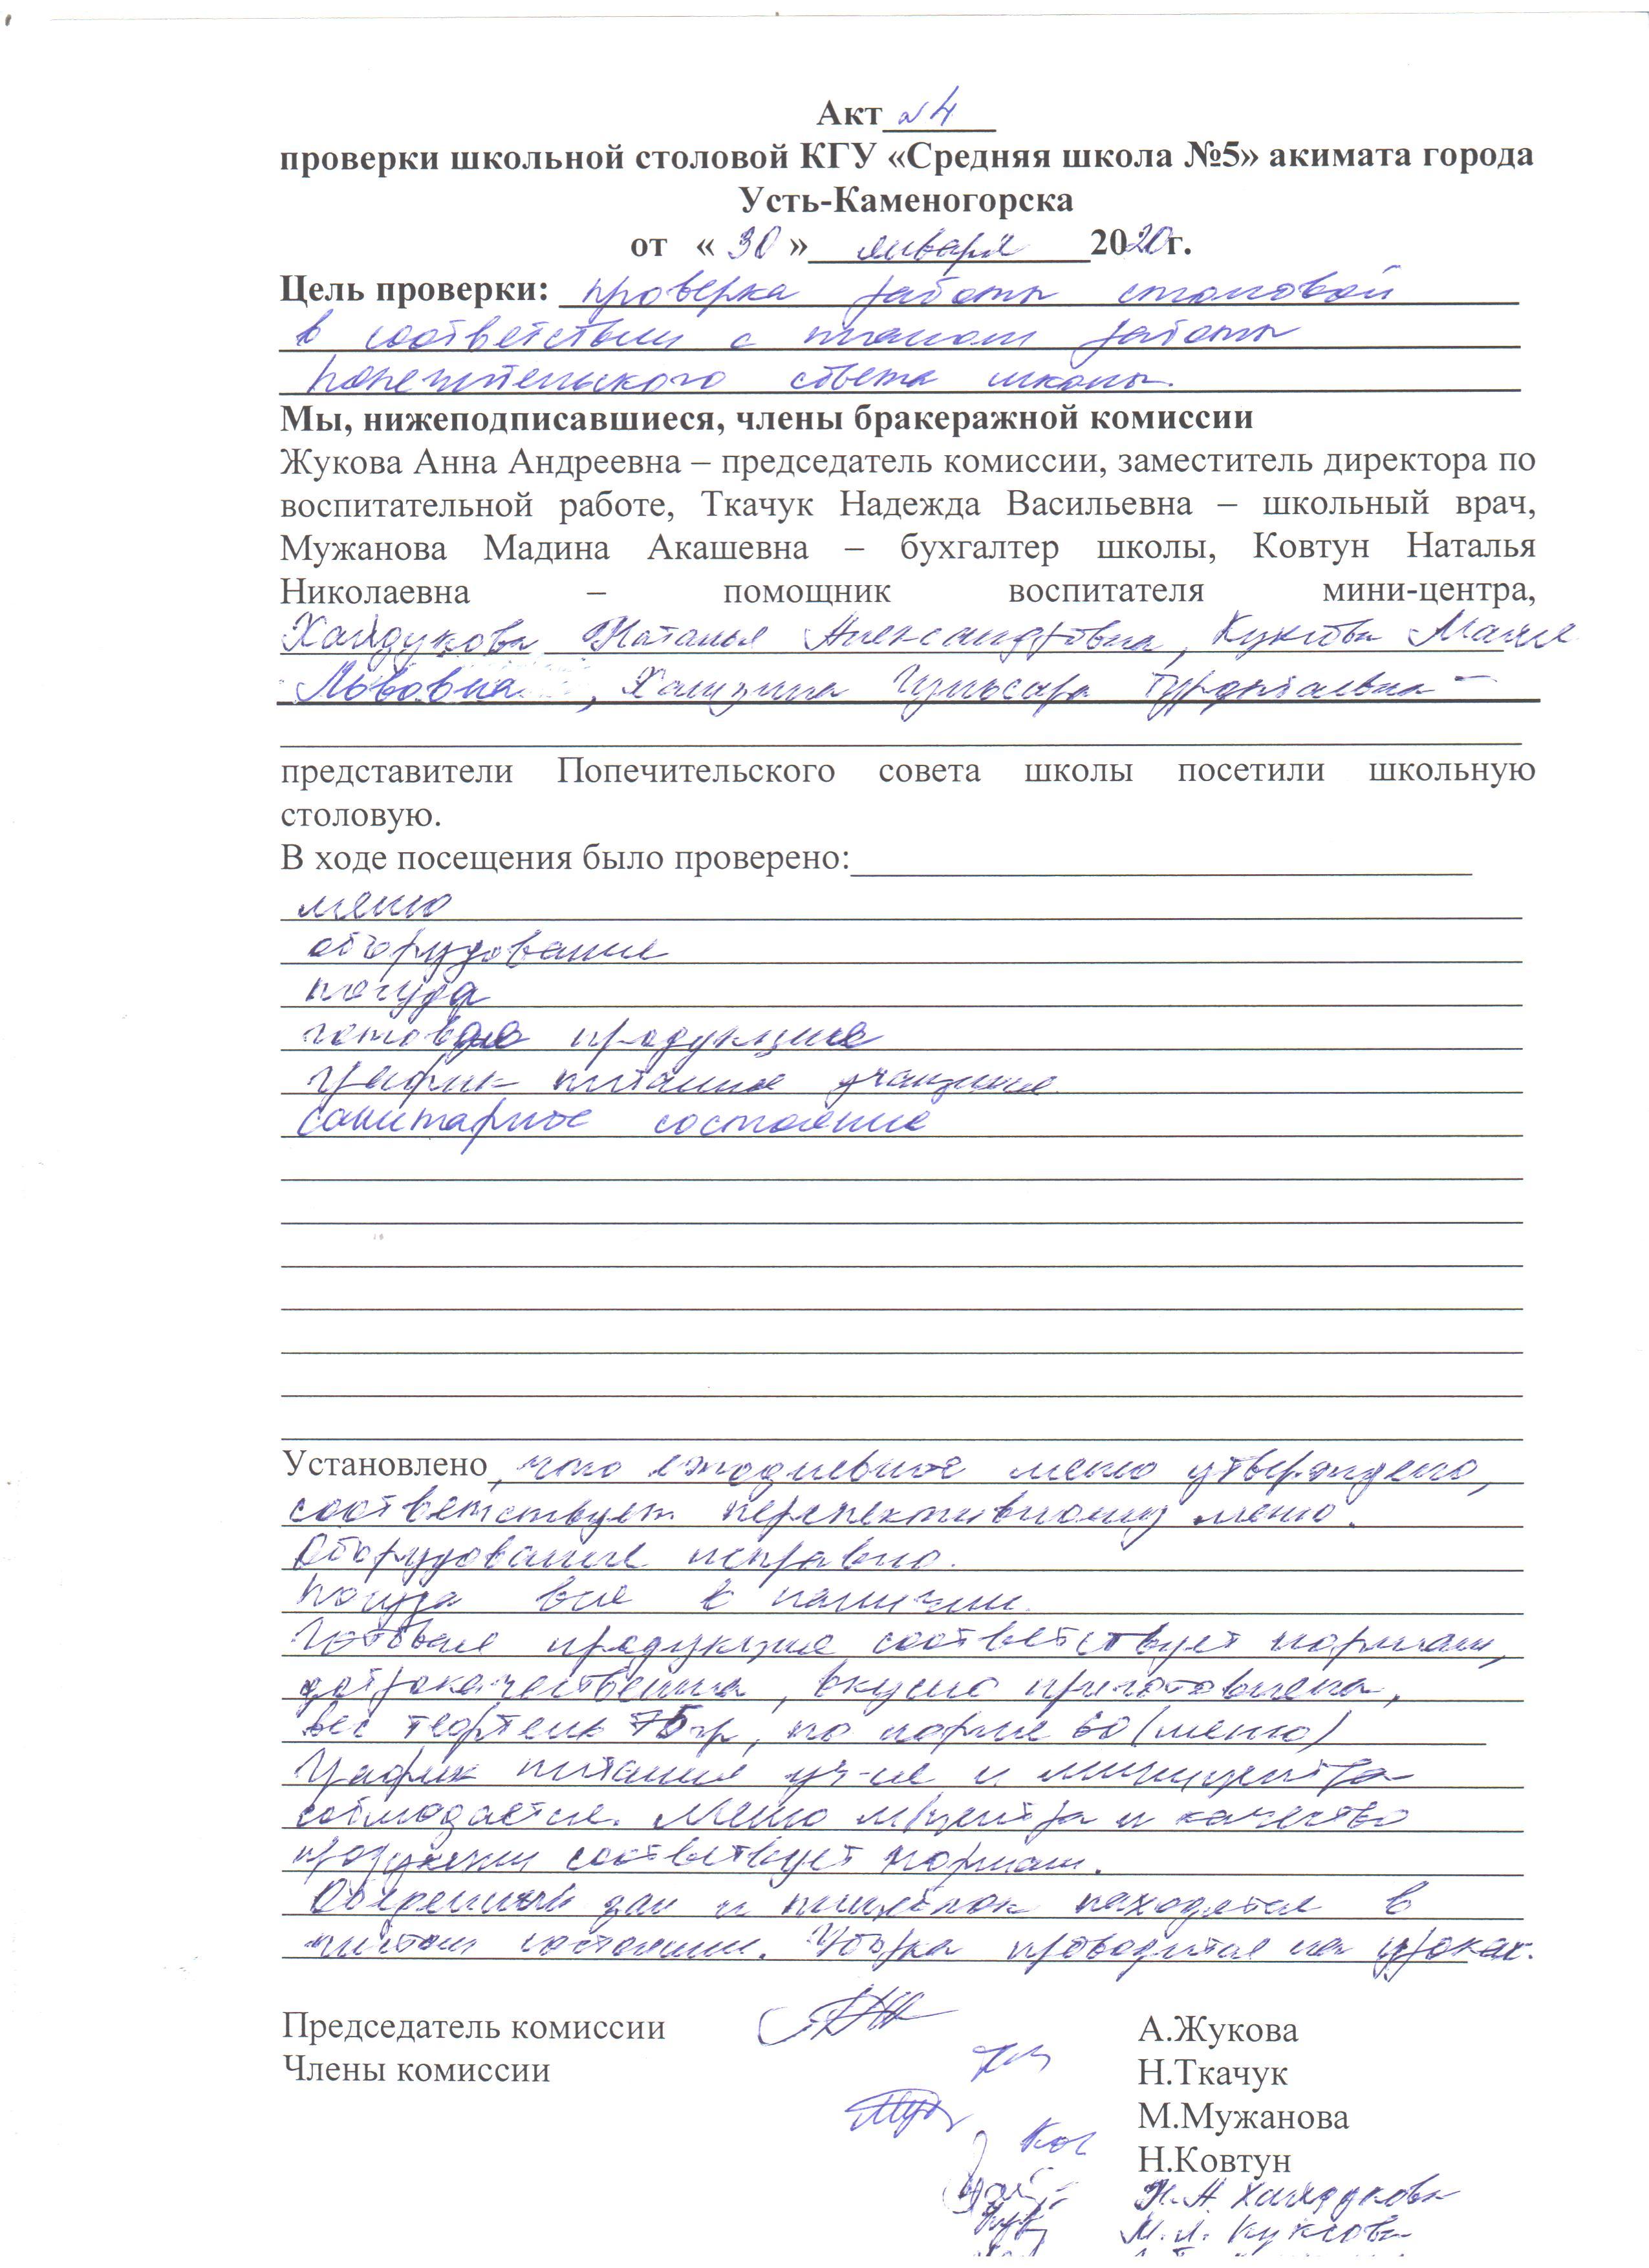 Акт №4
проверки школьной столовой КГУ «Средняя школа №5» акимата города
Усть-Каменогорска
от « 30 » января 2020г.
Цель проверки: проверка работы столовой
в соответствии с планом работы
попечительского совета школы.
Мы, нижеподписавшиеся, члены бракеражной комиссии
Жукова Анна Андреевна – председатель комиссии, заместитель директора по
воспитательной работе, Ткачук Надежда Васильевна – школьный врач,
Мужанова Мадина Акашевна – бухгалтер школы, Ковтун Наталья
Николаевна – помощник воспитателя мини-центра,
Хайдукова Наталья Александровна, Куксова
Львовна, Гульсара
представители Попечительского совета школы посетили школьную
столовую.
В ходе посещения было проверено:
меню
оборудование
посуда
готовая продукция
график питания учащихся
санитарное состояние
Установлено, что ежедневное меню утверждено,
соответствует перспективному меню.
Оборудование исправно.
Посуда вся в наличии.
Готовая продукция соответствует нормам,
доброкачественна, вкусно приготовлена,
вес тефтели 75гр, по норме 60 (меню)
График питания уч-ся и миницентра
соблюдается. Меню м/центра и качество
продукции соответствует нормам.
Обеденный зал и пищеблок находятся в
чистом состоянии. Уборка проводится на уроках.
Председатель комиссии А.Жукова
Члены комиссии Н.Ткачук
М.Мужанова
Н.Ковтун
Н.А. Хайдукова
М.Л. Куксова